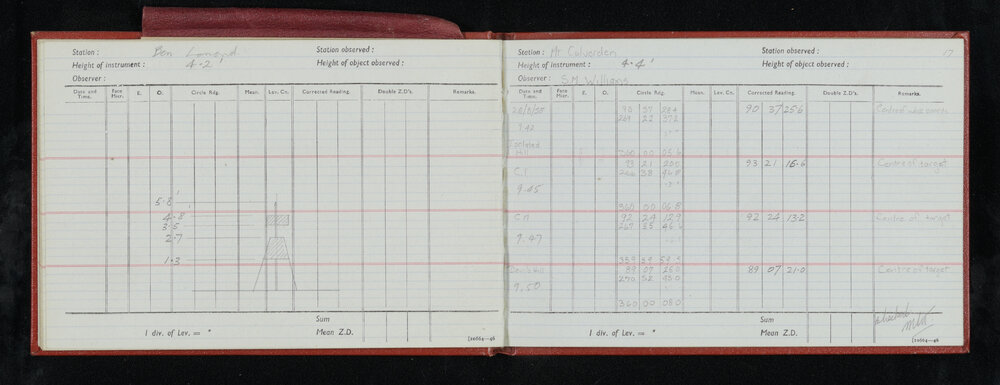 Station : Ben Lomond Station observed :
Height of instrument : 4·2' Height of object observed :
Observer :
Date and Time. Face Micr. E. O. Circle Rdg. Mean. Lev. Cn. Corrected Reading. Double Z.D's. Remarks.
5·8'
4·8
3·5
2·7
1·3
Sum
1 div. of Lev. = " Mean Z.D.
[20664—46
Station : Mt Culverden Station observed : 17
Height of instrument : 4·4' Height of object observed :
Observer : S.M. Williams
Date and Time. Face Micr. E. O. Circle Rdg. Mean. Lev. Cn. Corrected Reading. Double Z.D's. Remarks.
90 37 28.4 90 37 25.6 Centre of
269 22 37.2
9.42
Isolated
Hill 360 00 05.6
93 21 20.0 93 21 16.6 Centre of target
C.1 266 38 46.8
9.45
360 00 06.8
92 24 12.9 92 24 13.2 Centre of target
267 35 46.6
9.47
359 59 59.5
89 07 25.0 89 07 21.0 Centre of target
270 52 43.0
9.50
360 00 08.0
Sum
1 div. of Lev. = " Mean Z.D. Checked
[20664—46